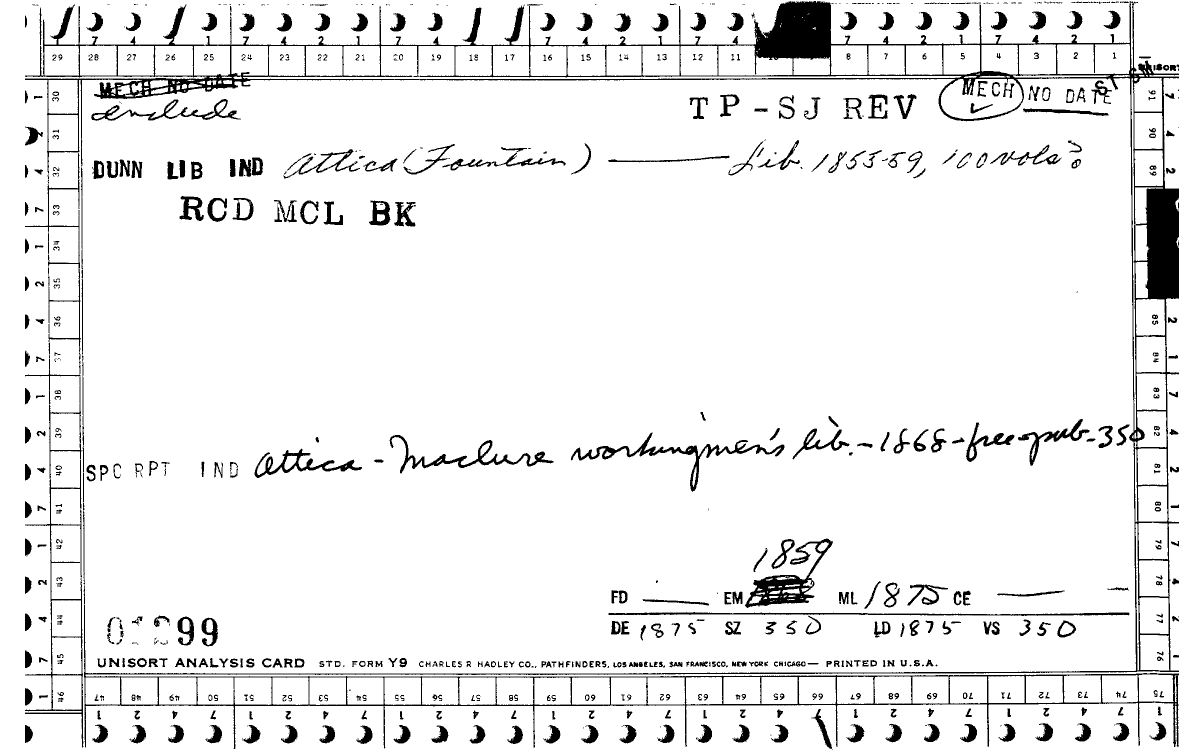 7 4 2 1 7 4 2 1 7 4 2 1 7 4 2 1 7 4 2 1
29 28 27 26 25 24 23 22 21 20 19 18 17 16 15 14 13 12 11 8 7 6 5 4 3 2 1
MECH NO DATE
include
TP-SJ REV MECH NO DATE ST
DUNN LIB IND Attica (Fountain) — Lib. 1855-59, 100 vols?
RCD MCL BK
SPC RPT IND Attica - Maclure workingmen's lib. - 1868 - free-pub - 350
1859
FD — EM ML 1875 CE —
DE 1875 SZ 350 LD 1875 VS 350
99
UNISORT ANALYSIS CARD STD. FORM Y9 CHARLES R HADLEY CO., PATHFINDERS, LOS ANGELES, SAN FRANCISCO, NEW YORK CHICAGO — PRINTED IN U.S.A.
30 31 32 33 34 35 36 37 38 39 40 41 42 43 44 45 46
91 90 89 85 84 83 82 81 80 79 78 77 76 75
47 48 49 50 51 52 53 54 55 56 57 58 59 60 61 62 63 64 65 66 67 68 69 70 71 72 73 74 75
1 2 4 7 1 2 4 7 1 2 4 7 1 2 4 7 1 2 4 7 1 2 4 7 1 2 4 7 1